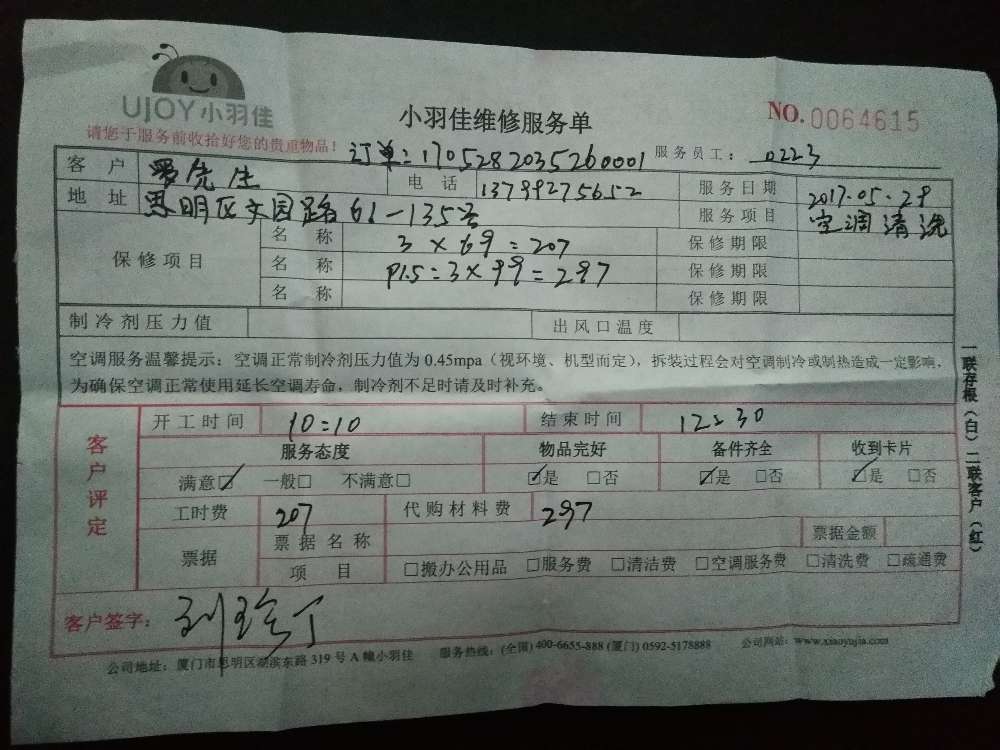 UJOY小羽佳
小羽佳维修服务单
NO.0064615
请您于服务前收拾好您的贵重物品！
订单:1705282035260001 服务员工： 0223
客 户 罗先生 电 话 13799275652 服务日期 2017.05.29
地 址 思明区文园路61-135号 服务项目 空调清洗
保修项目 名 称 3×69=207 保修期限
名 称 P1.5=3×99=297 保修期限
名 称 保修期限
制冷剂压力值 出风口温度
空调服务温馨提示：空调正常制冷剂压力值为 0.45mpa（视环境、机型而定），拆装过程会对空调制冷或制热造成一定影响，
为确保空调正常使用延长空调寿命，制冷剂不足时请及时补充。
客户评定
开工时间 10:10 结束时间 12:30
服务态度 物品完好 备件齐全 收到卡片
满意☑ 一般□ 不满意□ ☑是 □否 ☑是 □否 ☑是 □否
工时费 207 代购材料费 297
票据 票据名称 票据金额
项 目 □搬办公用品 □服务费 □清洁费 □空调服务费 □清洗费 □疏通费
客户签字：
公司地址：厦门市思明区湖滨东路 319 号 A 幢小羽佳 服务热线：(全国) 400-6655-888 (厦门) 0592-5178888 公司网站：www.xiaoyujia.com
一联存根（白）二联客户（红）